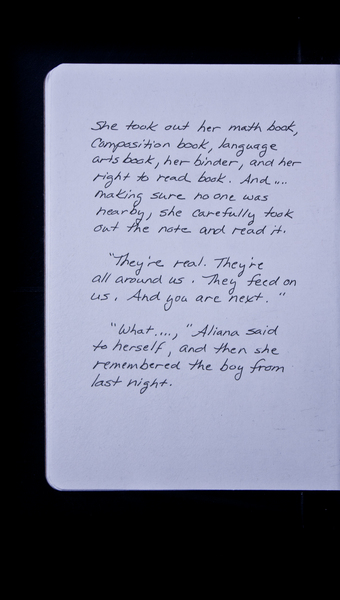 She took out her math book,
Composition book, language
arts book, her binder, and her
right to read book. And....
making sure no one was
nearby, she carefully took
out the note and read it.
"They're real. They're
all around us. They feed on
us. And you are next."
"What....," Aliana said
to herself, and then she
remembered the boy from
last night.